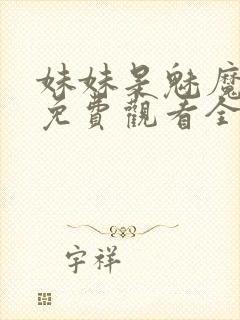 妹妹是魅魔
免費觀看全
宇祥